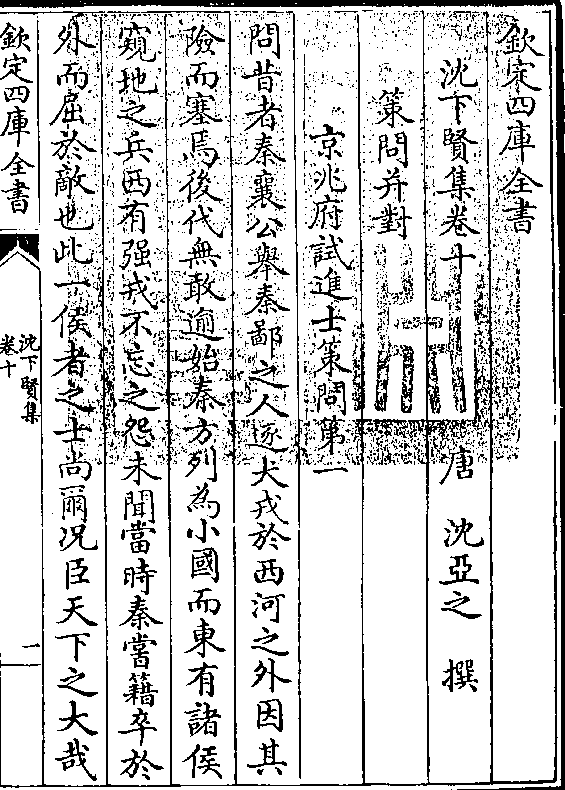 欽定四庫全書
沈下賢集卷十
唐 沈亞之 撰
策問并對
京兆府試進士策問第一
問昔者秦襄公舉秦鄙之人逐犬戎於西河之外因其
險而塞焉後代無敢逾始秦方列為小國而東有諸侯
窺地之兵西有强戎不忘之怨未聞當時秦嘗籍卒於
外而屈於敵也此一侯者之士尚爾况臣天下之大哉
欽定四庫全書
沈下賢集
卷十
一